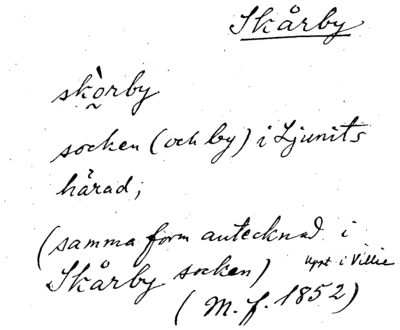 Skårby
skò̰rby
socken (och by) i Ljunits
härad;
(samma form antecknad i
Skårby socken) uppt i Villie
(M. f. 1852)